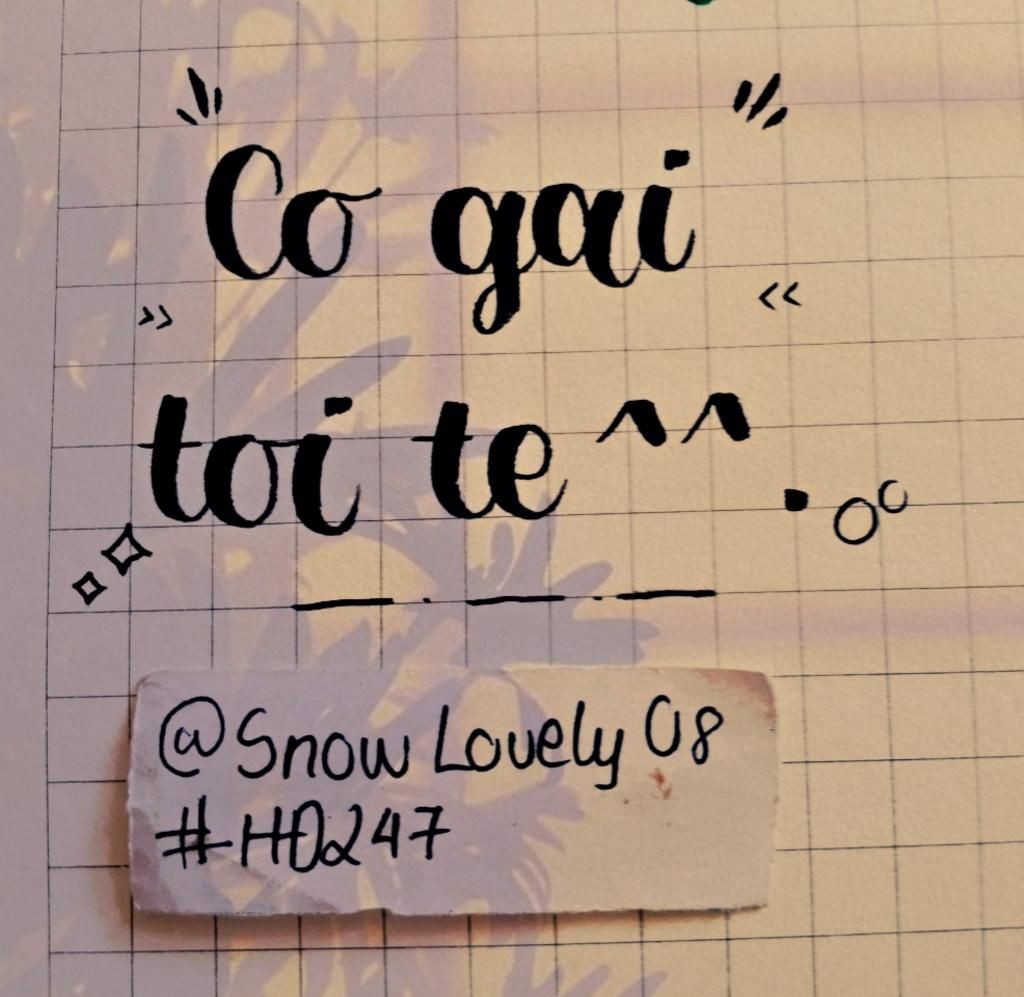 Co gai
toi te ^^
@Snow Lovely 08
#HD247